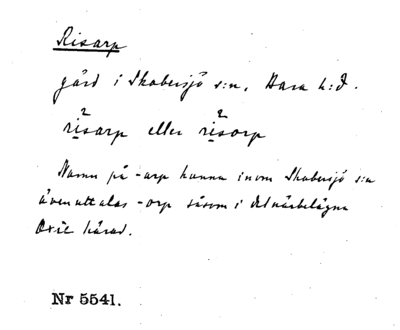 Risarp
gård i Skabersjö s:n, Bara h:d.
rìsarp eller rìsorp
Namn på -arp kunna inom Skabersjö s:n
även uttalas -orp såsom i det närbelägna
Oxie härad.
Nr 5541.